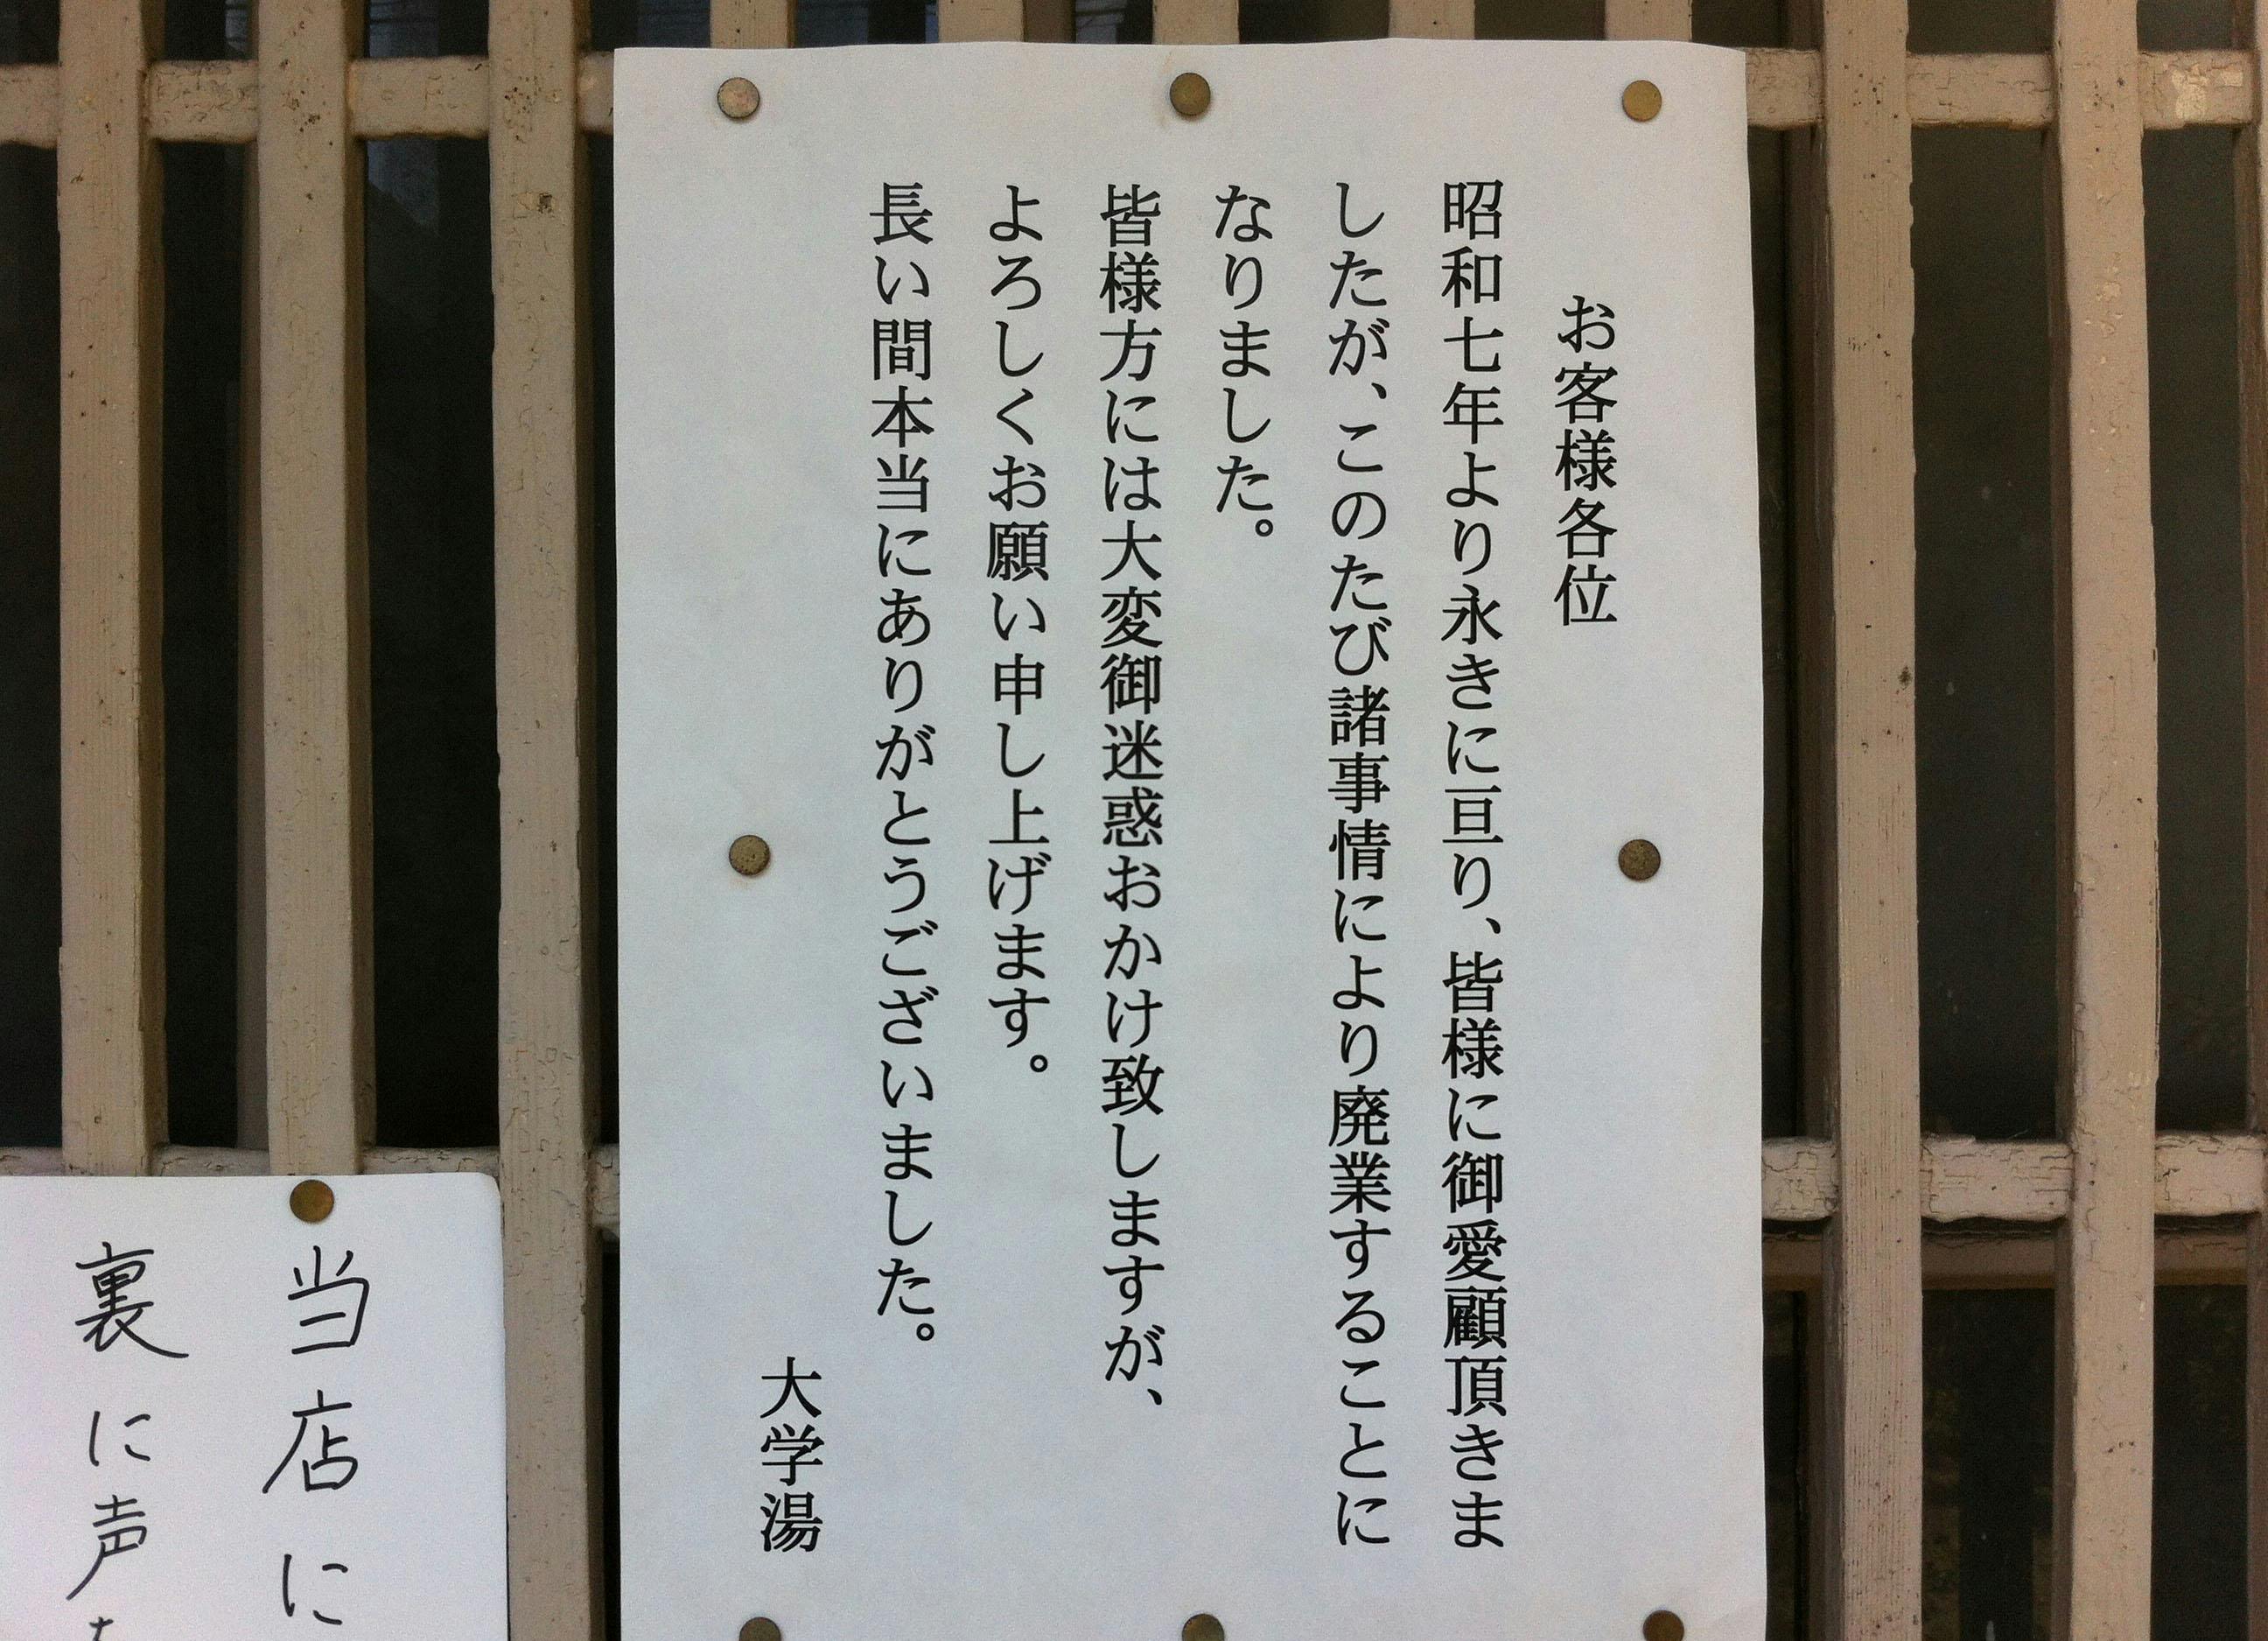 お客様各位
昭和七年より永きに亘り、皆様に御愛顧頂きま
したが、このたび諸事情により廃業することに
なりました。
皆様方には大変御迷惑おかけ致しますが、
よろしくお願い申し上げます。
長い間本当にありがとうございました。
大学湯
当店に
裏に声